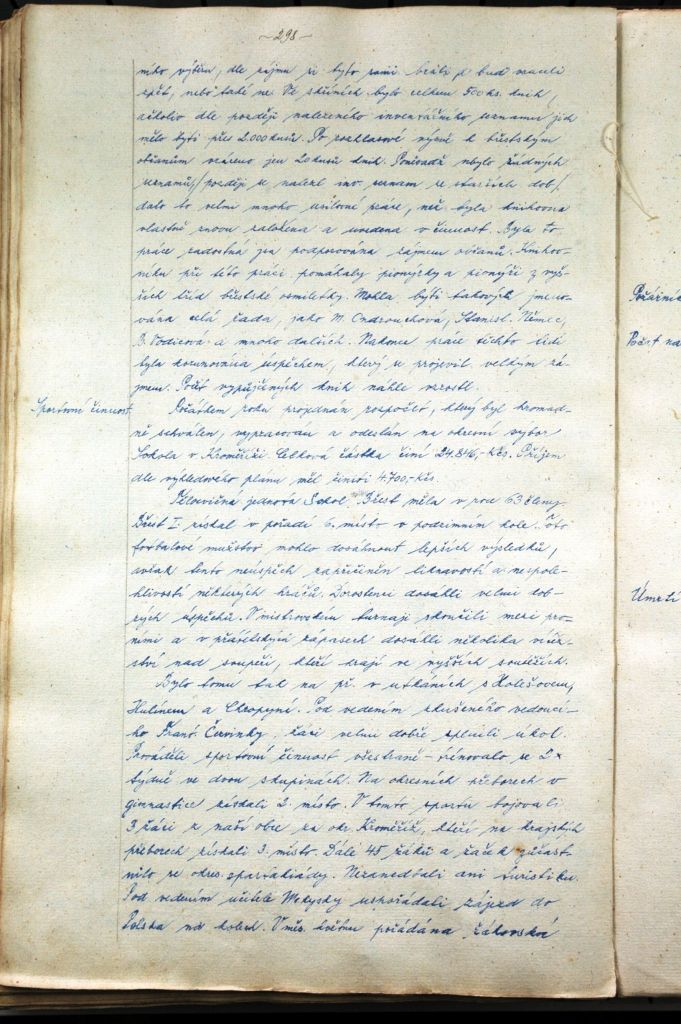 - 298 -
ního výběru, dle zájmu si tyto sami brali a buď vraceli
zpět, nebo také ne. Ve skříních bylo celkem 500 ks. knih,
ačkoliv dle později nalezeného inventárního seznamu jich
mělo býti přes 2.000 kusů. Po rozhlasové výzvě k břestským
občanům vráceno jen 20 kusů knih. Poněvadž nebylo žádných
seznamů, /později se nalezl inv. seznam ze starších dob/,
dalo to velmi mnoho usilovné práce, než byla knihovna
vlastně znovu založena a uvedena v činnost. Byla to
práce radostná jsa podporována zájmem občanů. Knihov-
níku při této práci pomáhaly pionýrky a pionýři z vyš-
ších tříd břestské osmiletky. Mohla býti takových jmeno-
vána celá řada, jako M. Ondrouchová, Stanisl. Němec,
B. Vodicova a mnoho dalších. Nakonec práce těchto lidí
byla korunována úspěchem, který se projevil velkým zá-
jmem. Počet vypůjčených knih náhle vzrostl.
Sportovní činnost
Počátkem roku projednán rozpočet, který byl hromad-
ně schválen, vypracován a odeslán na okresní výbor
Sokola v Kroměříži. Celková částka činí 24.846,- Kčs. Příjem
dle výhledového plánu měl činiti 4.700,- Kčs.
Tělocvičná jednota Sokol Břest měla v roce 63 členy.
Břest I. získal v pořadí 6. místo v podzimním kole. Toto
fotbalové mužstvo mohlo dosáhnout lepších výsledků,
avšak tento neúspěch zapříčiněn liknavostí a nespole-
hlivostí některých hráčů. Dorostenci dosáhli velmi dob-
rých úspěchů. V mistrovském turnaji skončili mezi prv-
ními a v přátelských zápasech dosáhli několika vítěz-
ství nad soupeři, kteří hrají ve vyšších soutěžích.
Bylo tomu tak na př. v utkáních s Holešovem,
Hulínem a Chropyní. Pod vedením zkušeného vedoucí-
ho Frant. Červinky, žáci velmi dobře splnili úkol.
Prováděli sportovní činnost všestraně - trénovalo se 2x
týdně ve dvou skupinách. Na okresních přeborech v
gimnastice získali 2. místo. V tomto sportu bojovali
3 žáci z naší obce za okr. Kroměříž, kteří na krajských
přeborech získali 3. místo. Dále 45 žáků a žaček zúčast-
nilo se okres. spartakiády. Nezanedbali ani turistiku.
Pod vedením učitele Mokysky uspořádali zájezd do
Polska na kolech. V měs. květnu pořádána žákovská
Počet na
Úmrtí